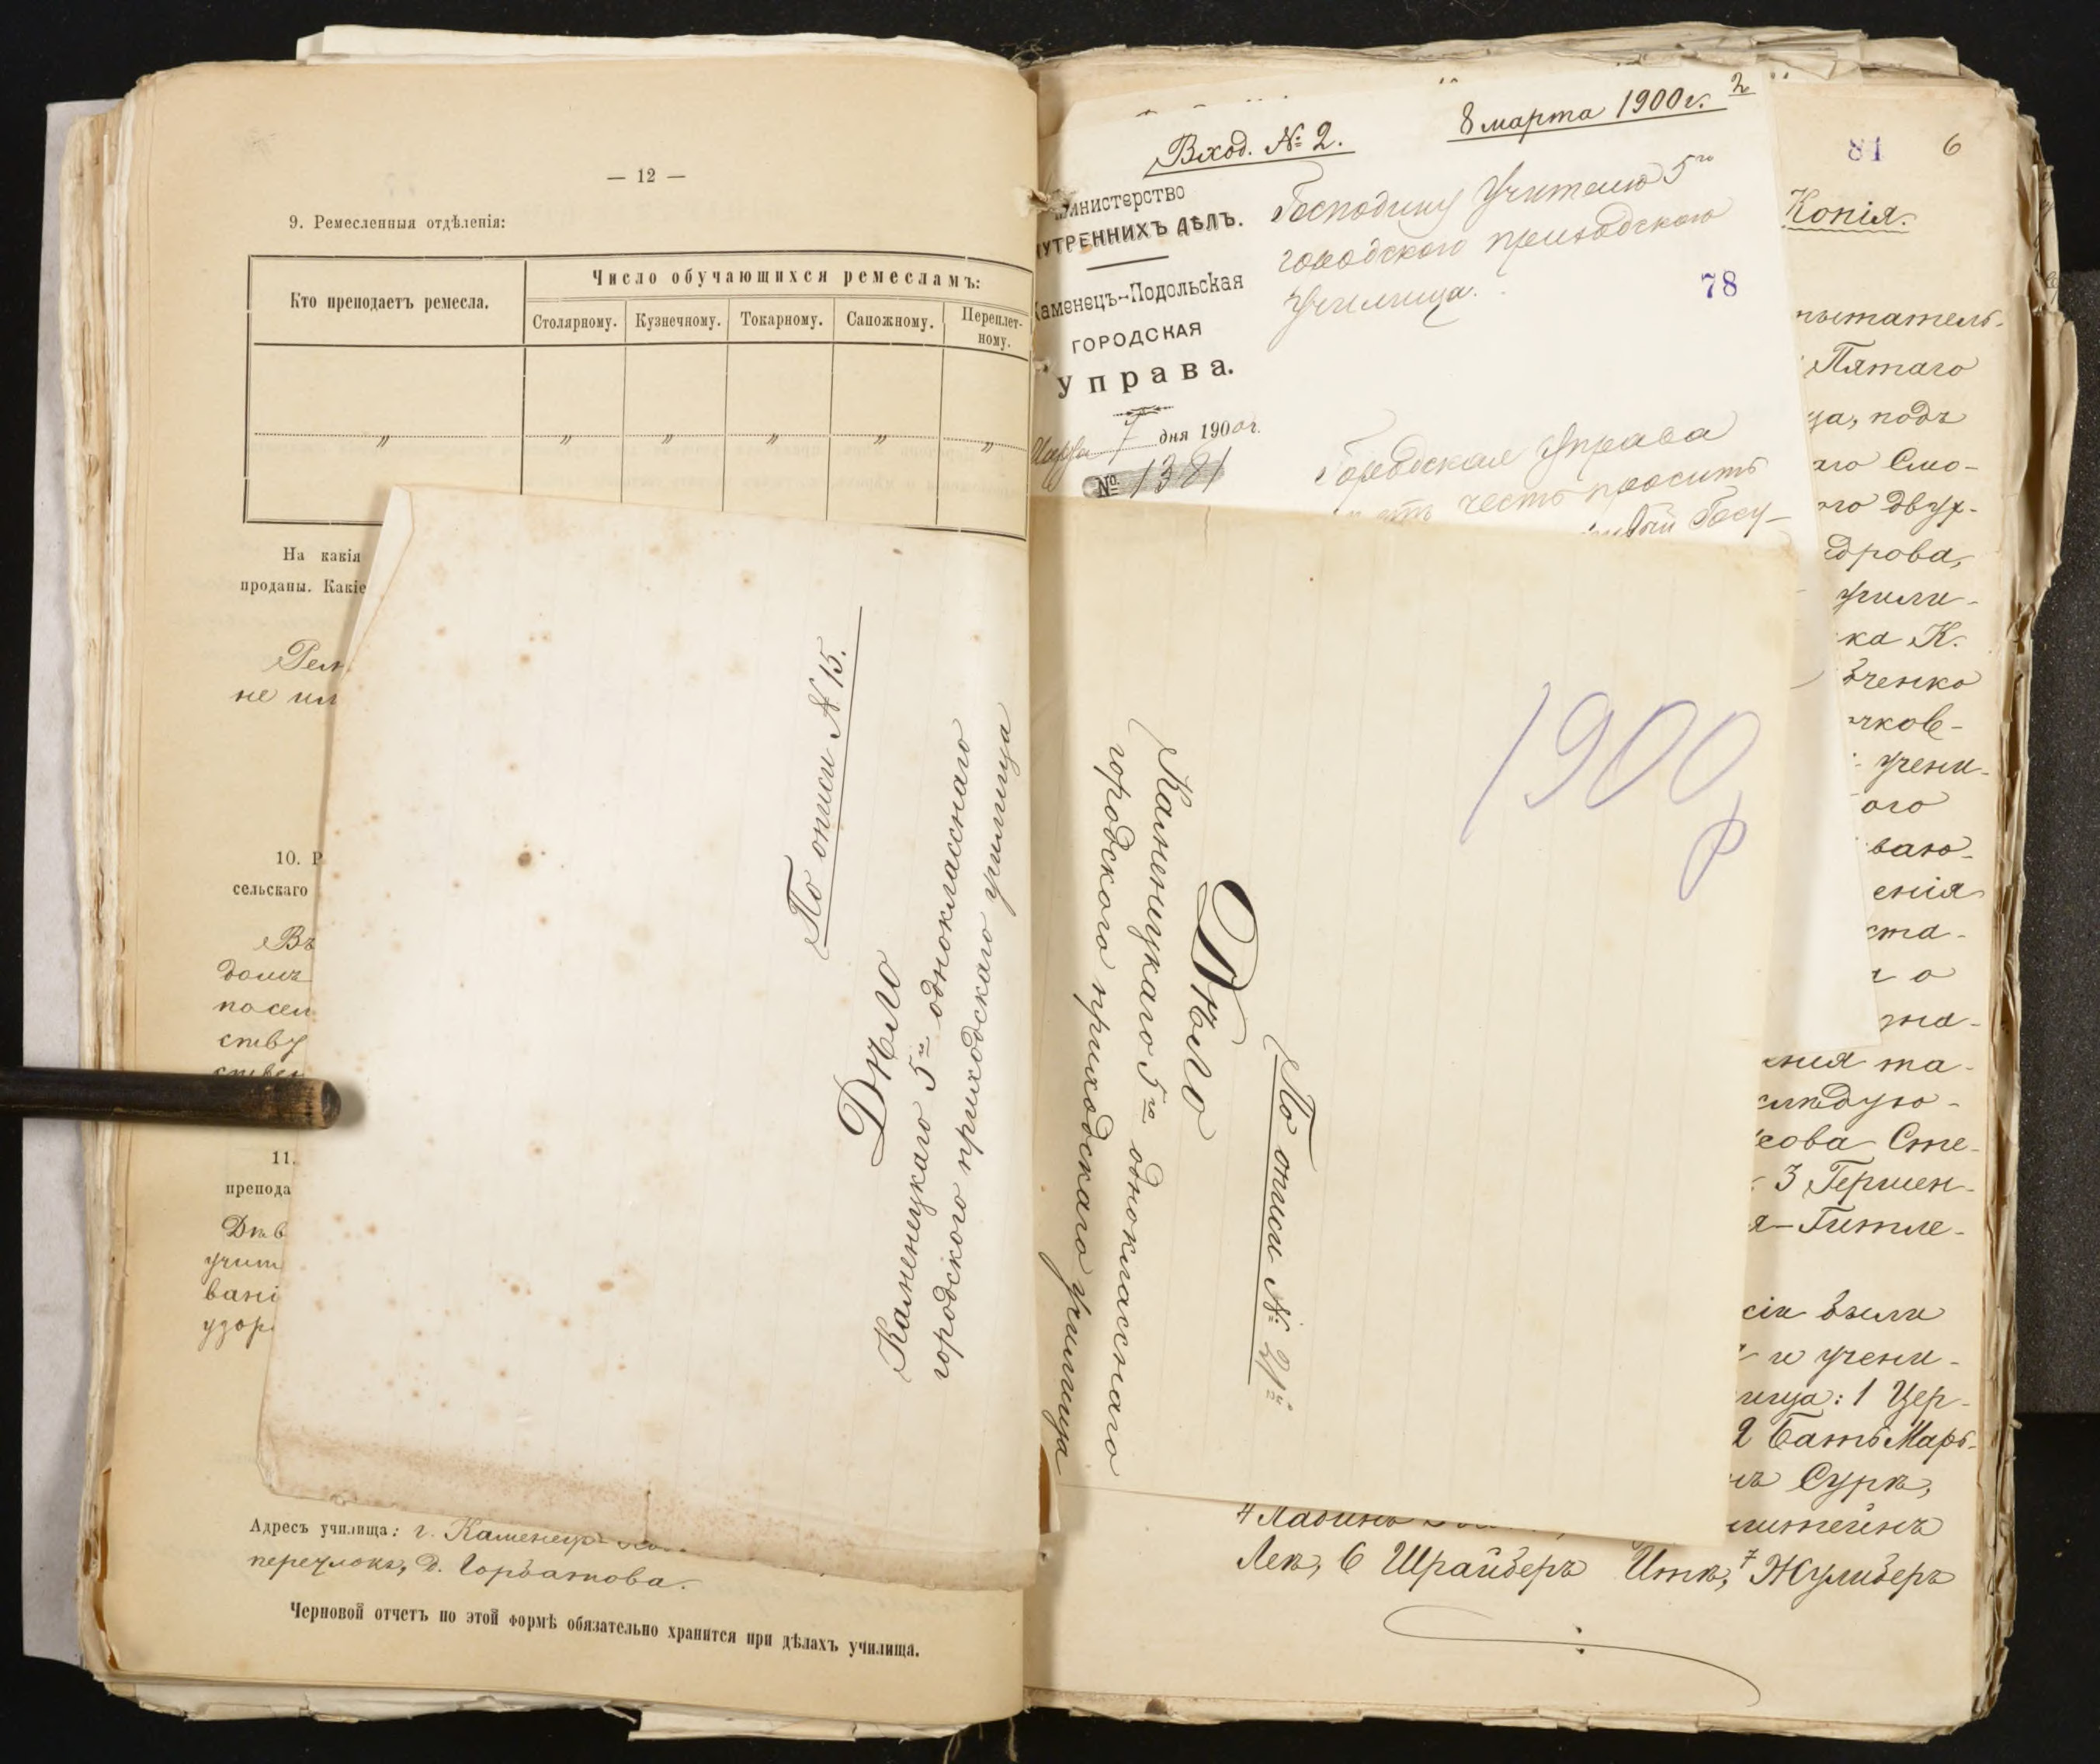 — 12 —
9. Ремесленныя отдѣленія:
Кто преподаетъ ремесла.
Число обучающихся ремесламъ:
Столярному. Кузнечному. Токарному. Сапожному. Переплет-
ному.
" " " " " "
На какія
проданы. Какіе
не
10. Р
сельскаго
Въ
домъ
посел
ству
11.
препода
учит
вані
Адресъ училища: г. Каменецъ-
переулокъ, д. Горбатова.
Черновой отчетъ по этой формѣ обязательно хранится при дѣлахъ училища.
По описи № 15.
Дѣло
Каменецкаго 5го однокласснаго
городского приходскаго училища
Вход. № 2. 8 марта 1900 г. 2
Министерство
ВНУТРЕННИХЪ ДѢЛЪ.
Каменецъ-Подольская
ГОРОДСКАЯ
Управа.
Марта 7 дня 1900 г.
№ 1381
Господину Учителю 5го
городского приходскаго
Училища.
78
Городская Управа
честь просить
Госу-
1900 р
По описи № 21й
Дѣло
Каменецкаго 5го однокласснаго
городского приходскаго училища
81 6
Копія.
пытатель-
Пятаго
ца, подъ
аго Смо-
ого двух-
дрова,
учили-
ка К.
вченко
чков-
учени-
ого
ваю-
енія
ста-
о
ния та-
слѣдую-
сова Сте-
3 Гермен-
я-Гитле-
сіи были
и учени-
лища: 1 Цер-
2 Бать Марь-
Суръ,
штейнъ
Лея, 6 Шрайберъ Итя, 7 Жулиберъ